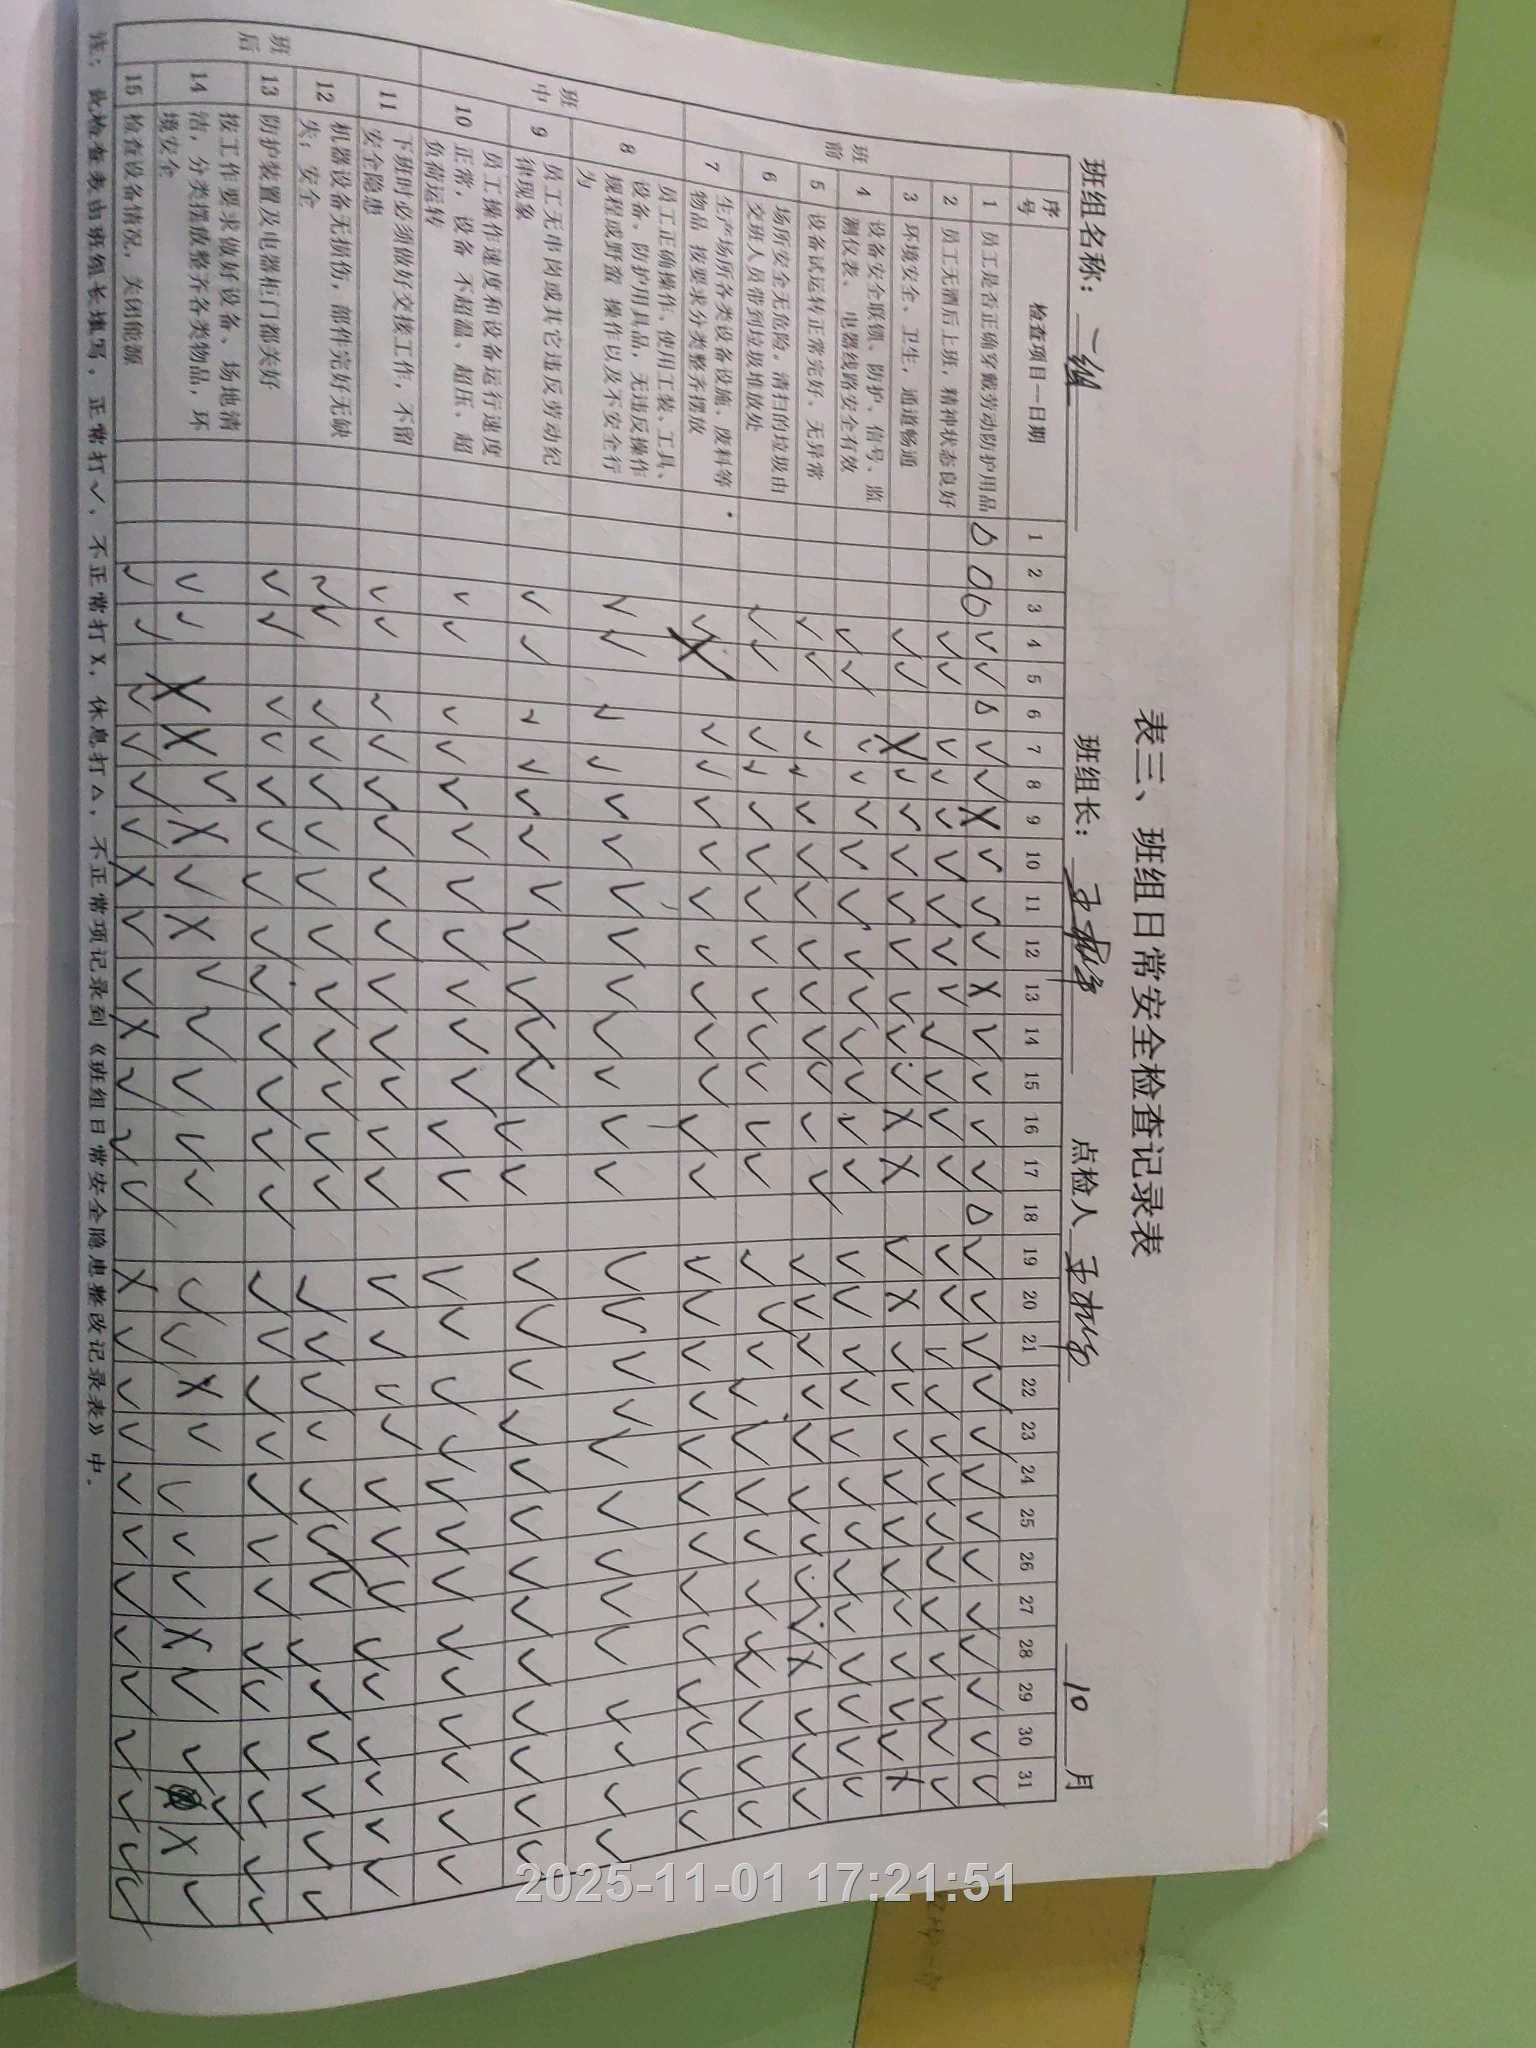 表三、班组日常安全检查记录表
班组名称：二组 班组长： 点检人 10月
序号 检查项目—日期 1 2 3 4 5 6 7 8 9 10 11 12 13 14 15 16 17 18 19 20 21 22 23 24 25 26 27 28 29 30 31
班前
1 员工是否正确穿戴劳动防护用品
2 员工无酒后上班，精神状态良好
3 环境安全、卫生，通道畅通
4 设备安全联锁、防护、信号、监
测仪表、电器线路安全有效
5 设备试运转正常完好、无异常
6 场所安全无危险，清扫的垃圾由
交班人员带到垃圾堆放处
7 生产场所各类设备设施、废料等
物品 按要求分类整齐摆放
班中
8 员工正确操作、使用工装、工具、
设备、防护用具品，无违反操作
规程或野蛮 操作以及不安全行
为
9 员工无串岗或其它违反劳动纪
律现象
10 员工操作速度和设备运行速度
正常，设备 不超温、超压、超
负荷运转
班后
11 下班时必须做好交接工作，不留
安全隐患
12 机器设备无损伤，部件完好无缺
失；安全
13 防护装置及电器柜门都关好
14 按工作要求做好设备、场地清
洁，分类摆放整齐各类物品，环
境安全
15 检查设备情况，关闭能源
注：此检查表由班组长填写，正常打√，不正常打X，休息打△，不正常项记录到《班组日常安全隐患整改记录表》中.
2025-11-01 17:21:51